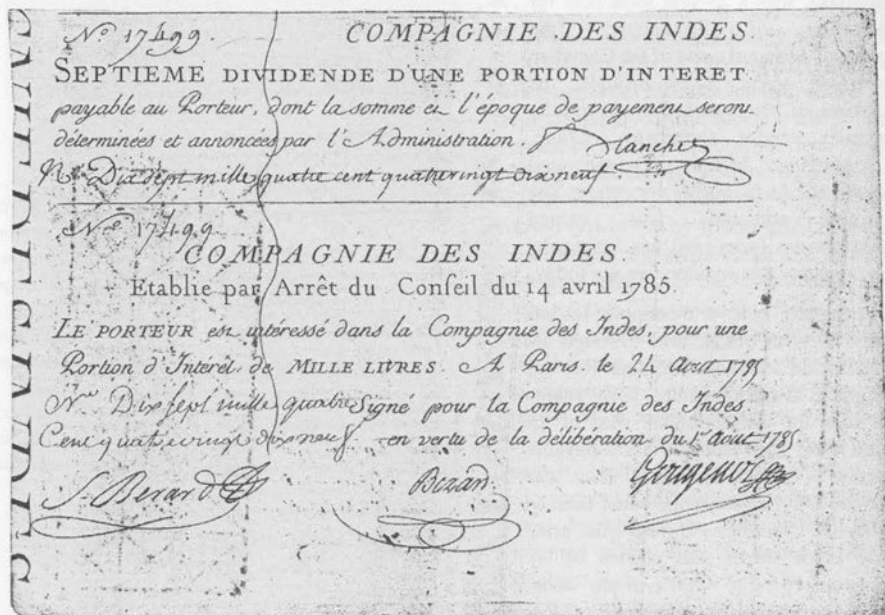 N.º 17499. COMPAGNIE DES INDES.
SEPTIEME DIVIDENDE D'UNE PORTION D'INTERET
payable au Porteur, dont la somme et l'époque de payement seront
déterminées et annoncées par l'Administration.
N.º Dix sept mille quatre cent quatrevingt dix neuf
N.º 17499
COMPAGNIE DES INDES.
Etablie par Arrêt du Conseil du 14 avril 1785.
LE PORTEUR est intéressé dans la Compagnie des Indes, pour une
Portion d'Intérêt de MILLE LIVRES. A Paris. le 24 Aout 1785
N.º Dix sept mille quatre Signé pour la Compagnie des Indes
Cent quatrevingt dix neuf. en vertu de la délibération du 1.er aout 1785.
S Berard Bezard Gougenot